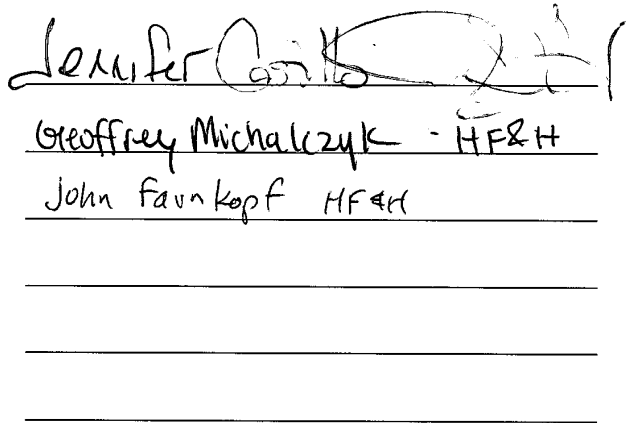 Jennifer
Geoffrey Michalczyk - HF&H
John Farnkopf HF&H